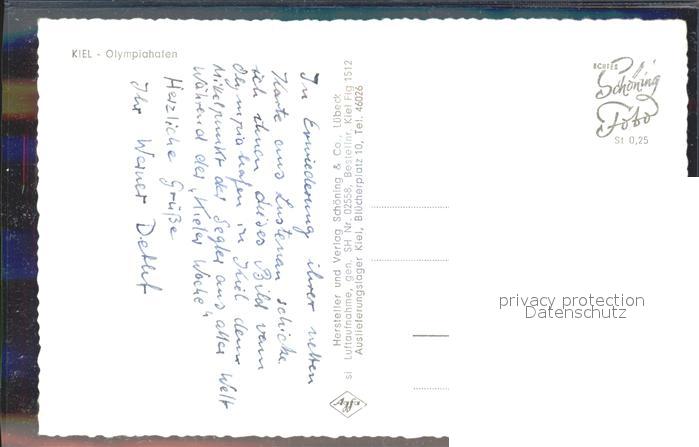 KIEL - Olympiahafen
In Erwiederung ihrer netten
Karte aus Lustenau schicke
ich ihnen dieses Bild vom
Olympiahafen in Kiel dem
Mittelpunkt der Segler aus aller Welt
während der „Kieler Woche“
Herzliche Grüße
Ihr Werner Detlef
Hersteller und Verlag Schöning & Co., Lübeck
si Luftaufnahme, gen. SH Nr. 02558, Bestellnr. Kiel Fig 1512
Auslieferungslager Kiel, Blücherplatz 10, Tel. 46026
Agfa
ECHTES
Schöning
Foto
St 0,25
privacy protection
Datenschutz